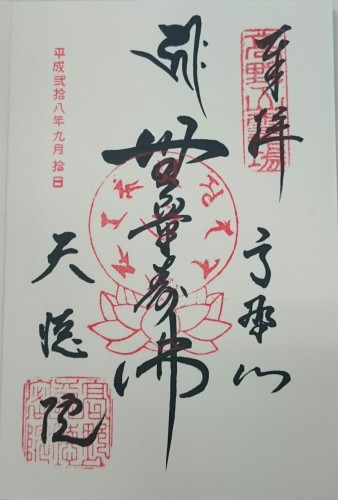 奉拝
高野山霊場
高野山
無量寿佛
平成弐拾八年九月拾日
天徳院